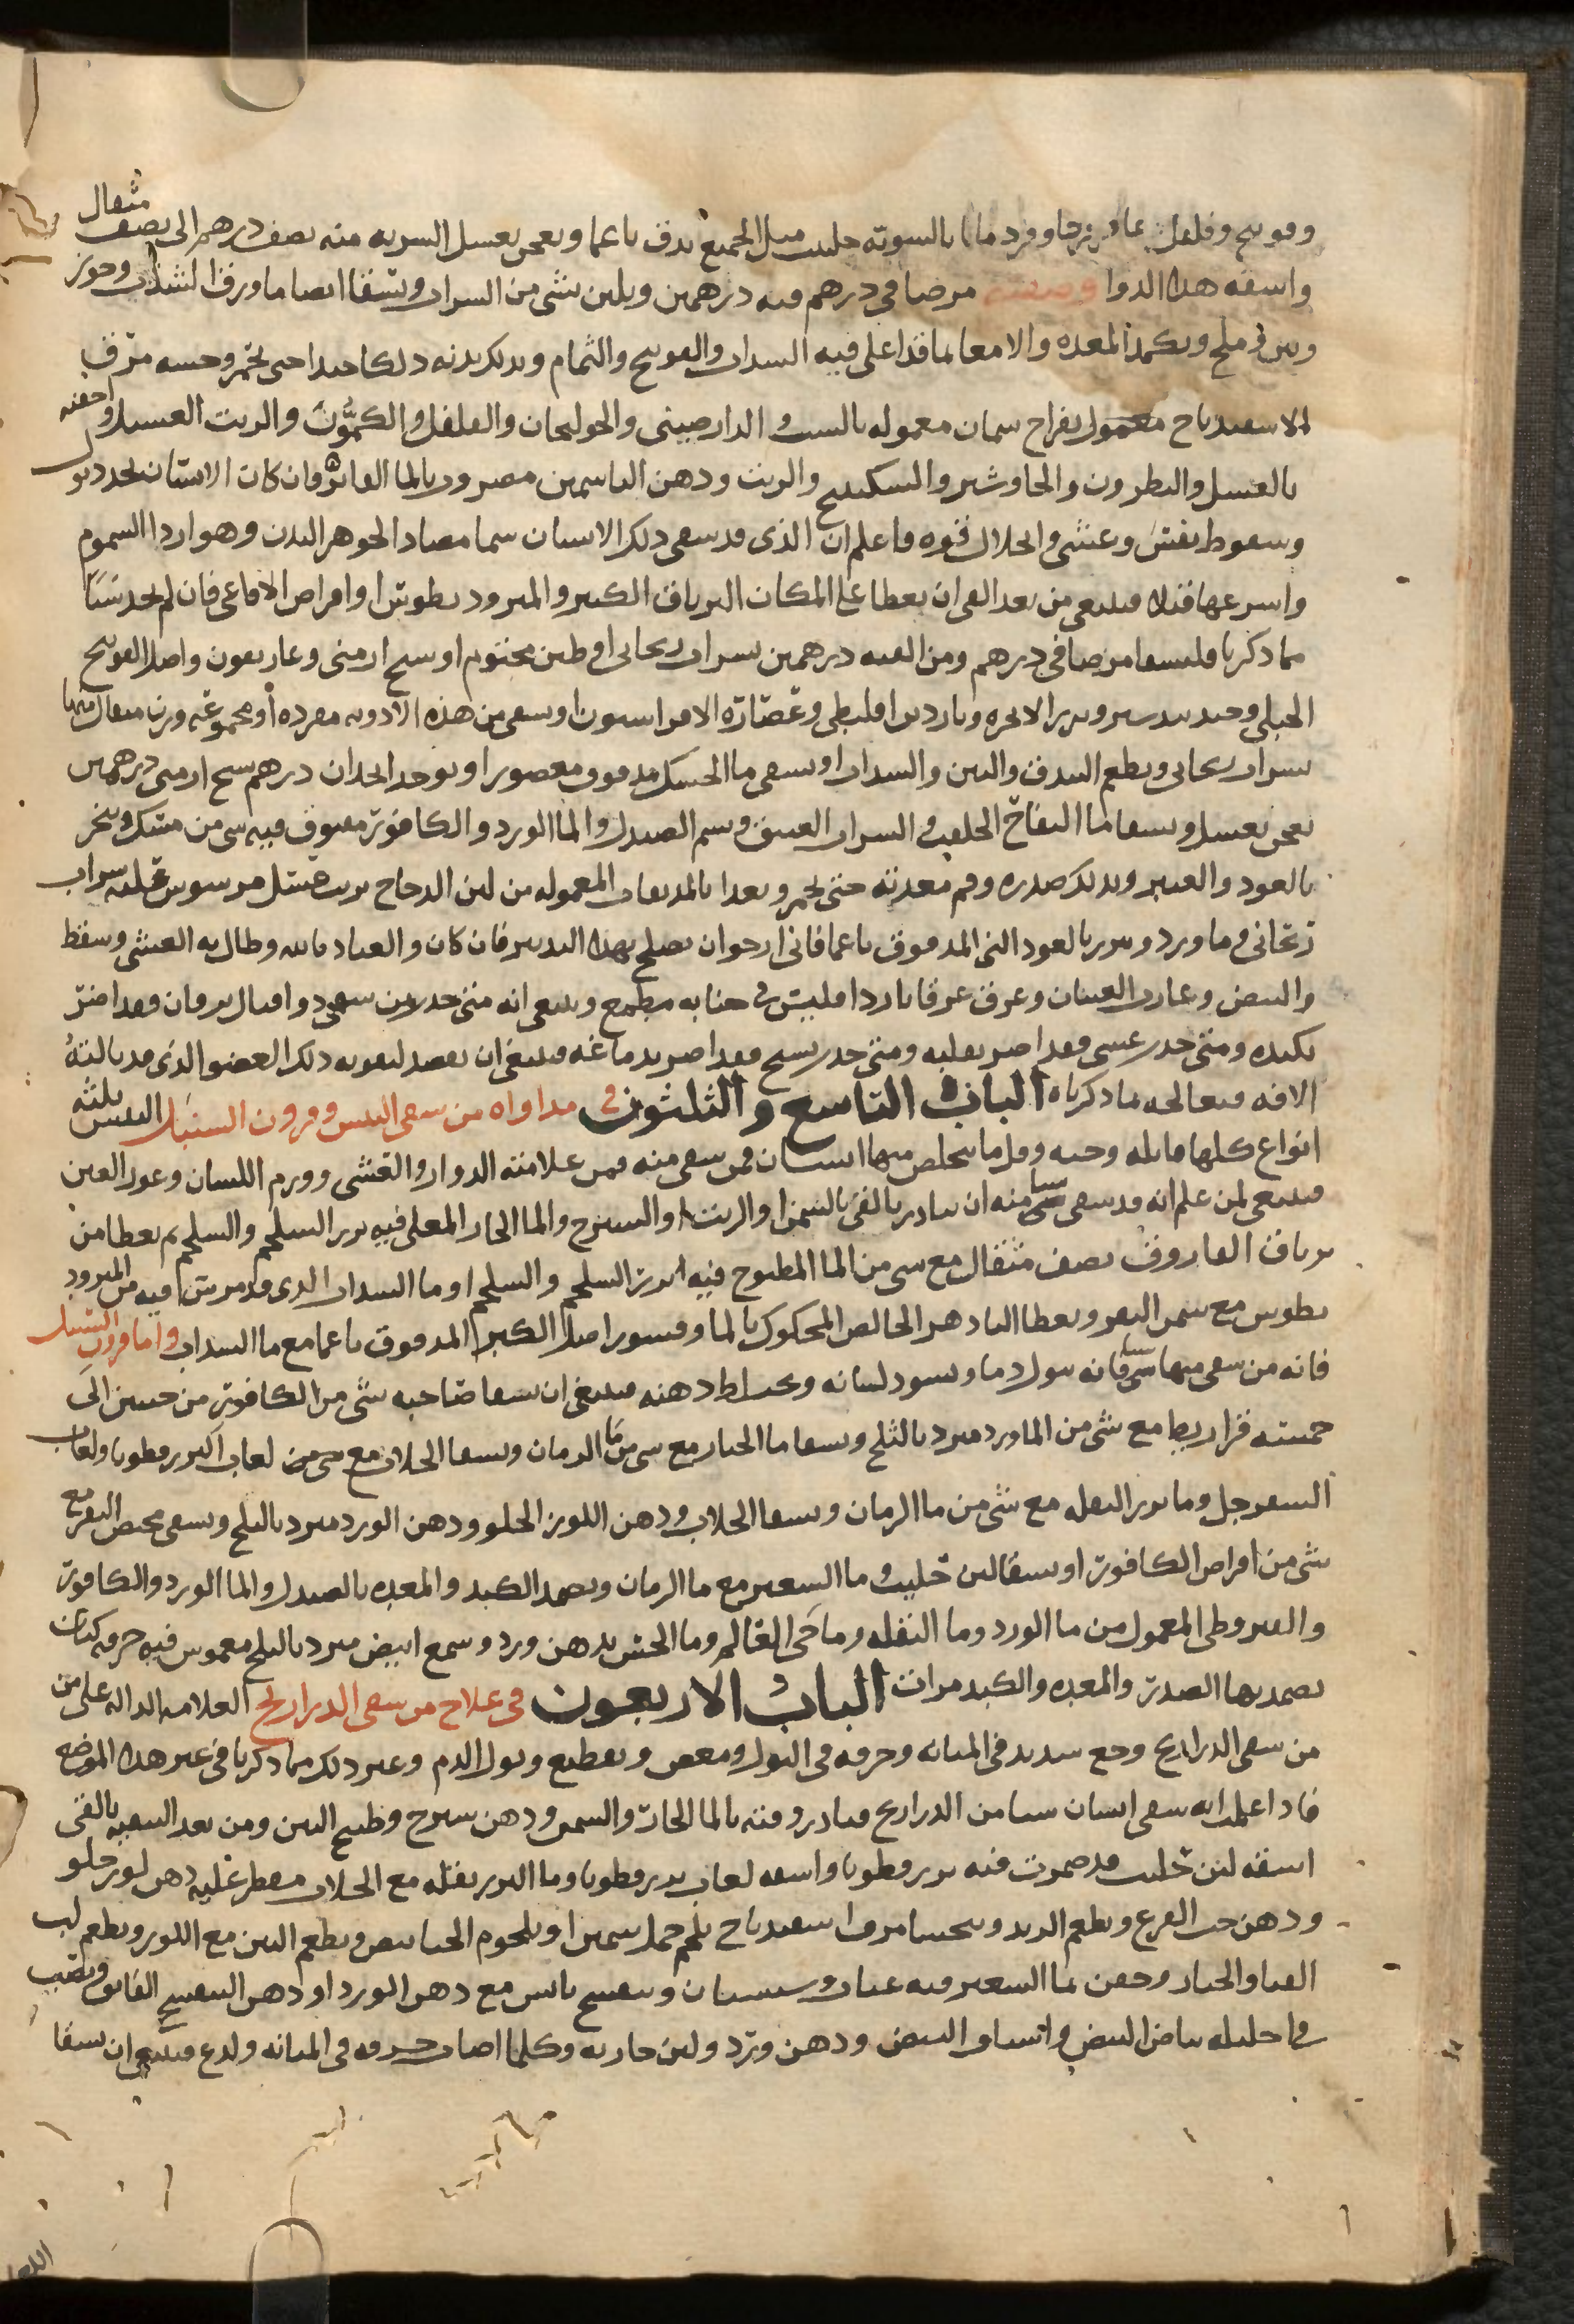 وفوتنج وفلفل وعاقرقرحا وقردمانا بالسويه حلتيت مثل الجميع يدق ناعما ويعجن بعسل الشربه منه نصف درهم الى نصف مثقال
واسقه هذا الدوا وصفته مر صافي درهم قنه درهمين ويلين بشي من الشراب ويسقا ايضا ما ورق السذاب وجوز
وتين وملح ويكمد المعده والامعا بما قد اغلي فيه السداب والفوتنج والنمام ويدلك بدنه دلكا جيدا حتى يحمر وحسه مرق
الاسفيدباج معمول بفراخ سمان معموله بالشبت والدارصيني والخولنجان والفلفل والكمون والزيت الغسيل واحقنه
بالعسل والنطرون والجاوشير والسكبينج والزيت ودهن الياسمين مضروب بالما الفاتر وان كان الانسان يجد ذبول
وسقوط نفس وغشي وانحلال قوه فاعلم ان الذي قد سقي ذلك الانسان سما مضاد لجوهر البدن وهو اردا السموم
واسرعها قتلا فينبغي من بعد القي ان يعطا على المكان الترياق الكبير والمثروديطوس او اقراص الافاعي فان لم يجد شيئا
مما ذكرنا فليسقا مر صافي درهم ومن القنه درهمين بشراب ريحاني او طين مختوم او شيح ارمني وغاريقون واصل الفوتنج
الجبلي وجندبيدستر وبزر الانجره وناردين اقليطي وعصاره الافراسيون او يسقى من هذه الادويه مفرده او مجموعه وزن مثقال منها
بشراب ريحاني ويطعم البندق والتين والسداب او يسقى ما الحسك مدقوق معصور او يوخذ انجدان درهم شيح ارمني درهمين
يعجن بعسل ويسقا بما التفاح الحلو في الشراب العتيق ويشم الصندل والما الورد والكافور مفتوق فيه شي من مسك ويبخر
بالعود والعنبر ويدلك صدره وفم معدته حتى يحمر ويغدا بالمدققات المعموله من لبن الدجاج
ريحاني وما ورد ويذر بالعود الني المدقوق ناعما فاني ارجو ان يصلح بهذا التدبير فان كان والعياذ بالله وطال به الغشي وسقط
والنبض وغارت العينان وعرق عرقا باردا فليس في حياته مطمع وينبغي انه متى حدث من سمي دوا قتال يرقان فقد اضر
بكبده ومتى حدث غشي فقد اضر بقلبه ومتى حدث تشنج فقد اضر بدماغه فينبغي ان يقصد لتقويه ذلك العضو الذي قد نالته
الافه فيعالجه بما ذكرناه الباب التاسع والثلثون في مداواه من سقى البيش وقرون السنبل البيش ثلثه
انواع كلها قاتله وحيه وقل ما يتخلص منها انسان فمن سقي منه فمن علامته الدوار والغشي وورم اللسان وغور العين
فينبغي لمن علم انه قد سقي شيا منه ان يبادر بالقي بالسمن او الزيت او الشيرج والما الحار المغلى فيه بزر السلجم والسلجم ثم يعطا من
ترياق الفاروق نصف مثقال مع شي من الما المطبوخ فيه بزر السلجم والسلجم او ما السداب الذي قد مرس فيه من المثرود
يطوس مع سمن البقر ويعطا البادهر الخالص المحكوك بالما وقشور اصل الكبر المدقوق ناعما مع ما السداب واما قرون السنبل
فانه من سقي منها شيا فانه يبول دما ويسود لسانه ويختلط ذهنه فينبغي ان يسقا صاحبه شي من الكافور من حبتين الى
خمسه قراريط مع شي من الماورد مبرد بالثلج ويسقا ما الخيار مع شي من ما الرمان ويسقا الجلاب مع شي من لعاب البزرقطونا ولعاب
السفرجل وما بزر البقله مع شي من ما الرمان ويسقا الجلاب ودهن اللوز الحلو ودهن الورد مبرد بالثلج ويسقى مخيض البقر مع
شي من اقراص الكافور او يسقا لبن حليب وما الشعير مع ما الرمان ويضمد الكبد والمعده بالصندل والما الورد والكافور
والقيروطي المعمول من ما الورد وما البقله وما حي العالم وما الخس بدهن ورد وشمع ابيض مبرد بالثلج مغموس فيه خرقه كتان
يضمد بها الصدر والمعده والكبد مرات الباب الاربعون في علاج من سقى الدراريح العلامه الداله على من
من سقى الدراريح وجع شديد في المثانه وحرقه في البول ومغص وتقطيع وبول الدم وغير ذلك مما ذكرنا في غير هذا الموضع
فاذا علمت انه سقي انسان شيا من الدراريح فبادر وقيه بالما الحار والسمن ودهن شيرج وطبيخ التين ومن بعد التنقيه بالقي
اسقه لبن حليب قد ضربت فيه بزرقطونا واسقه لعاب بزرقطونا وما البزر بقله مع الجلاب مقطر عليه دهن لوز حلو
ودهن حب القرع ويطعم الزبد ويتحسا مرق اسفيدباج بلحم حمل سمين او بلحوم الخنانيص ويطعم التين مع اللوز ويطعم لب
القثا والخيار ويحقن بما الشعير فيه عناب وسبستان وبنفسج يابس مع دهن الورد او دهن البنفسج الفايق ويصب
في احليله بياض البيض واشياف البيض ودهن ورد ولبن جاريه وكلما اصاب حرقه في المثانه ولدع فينبغي ان يسقا